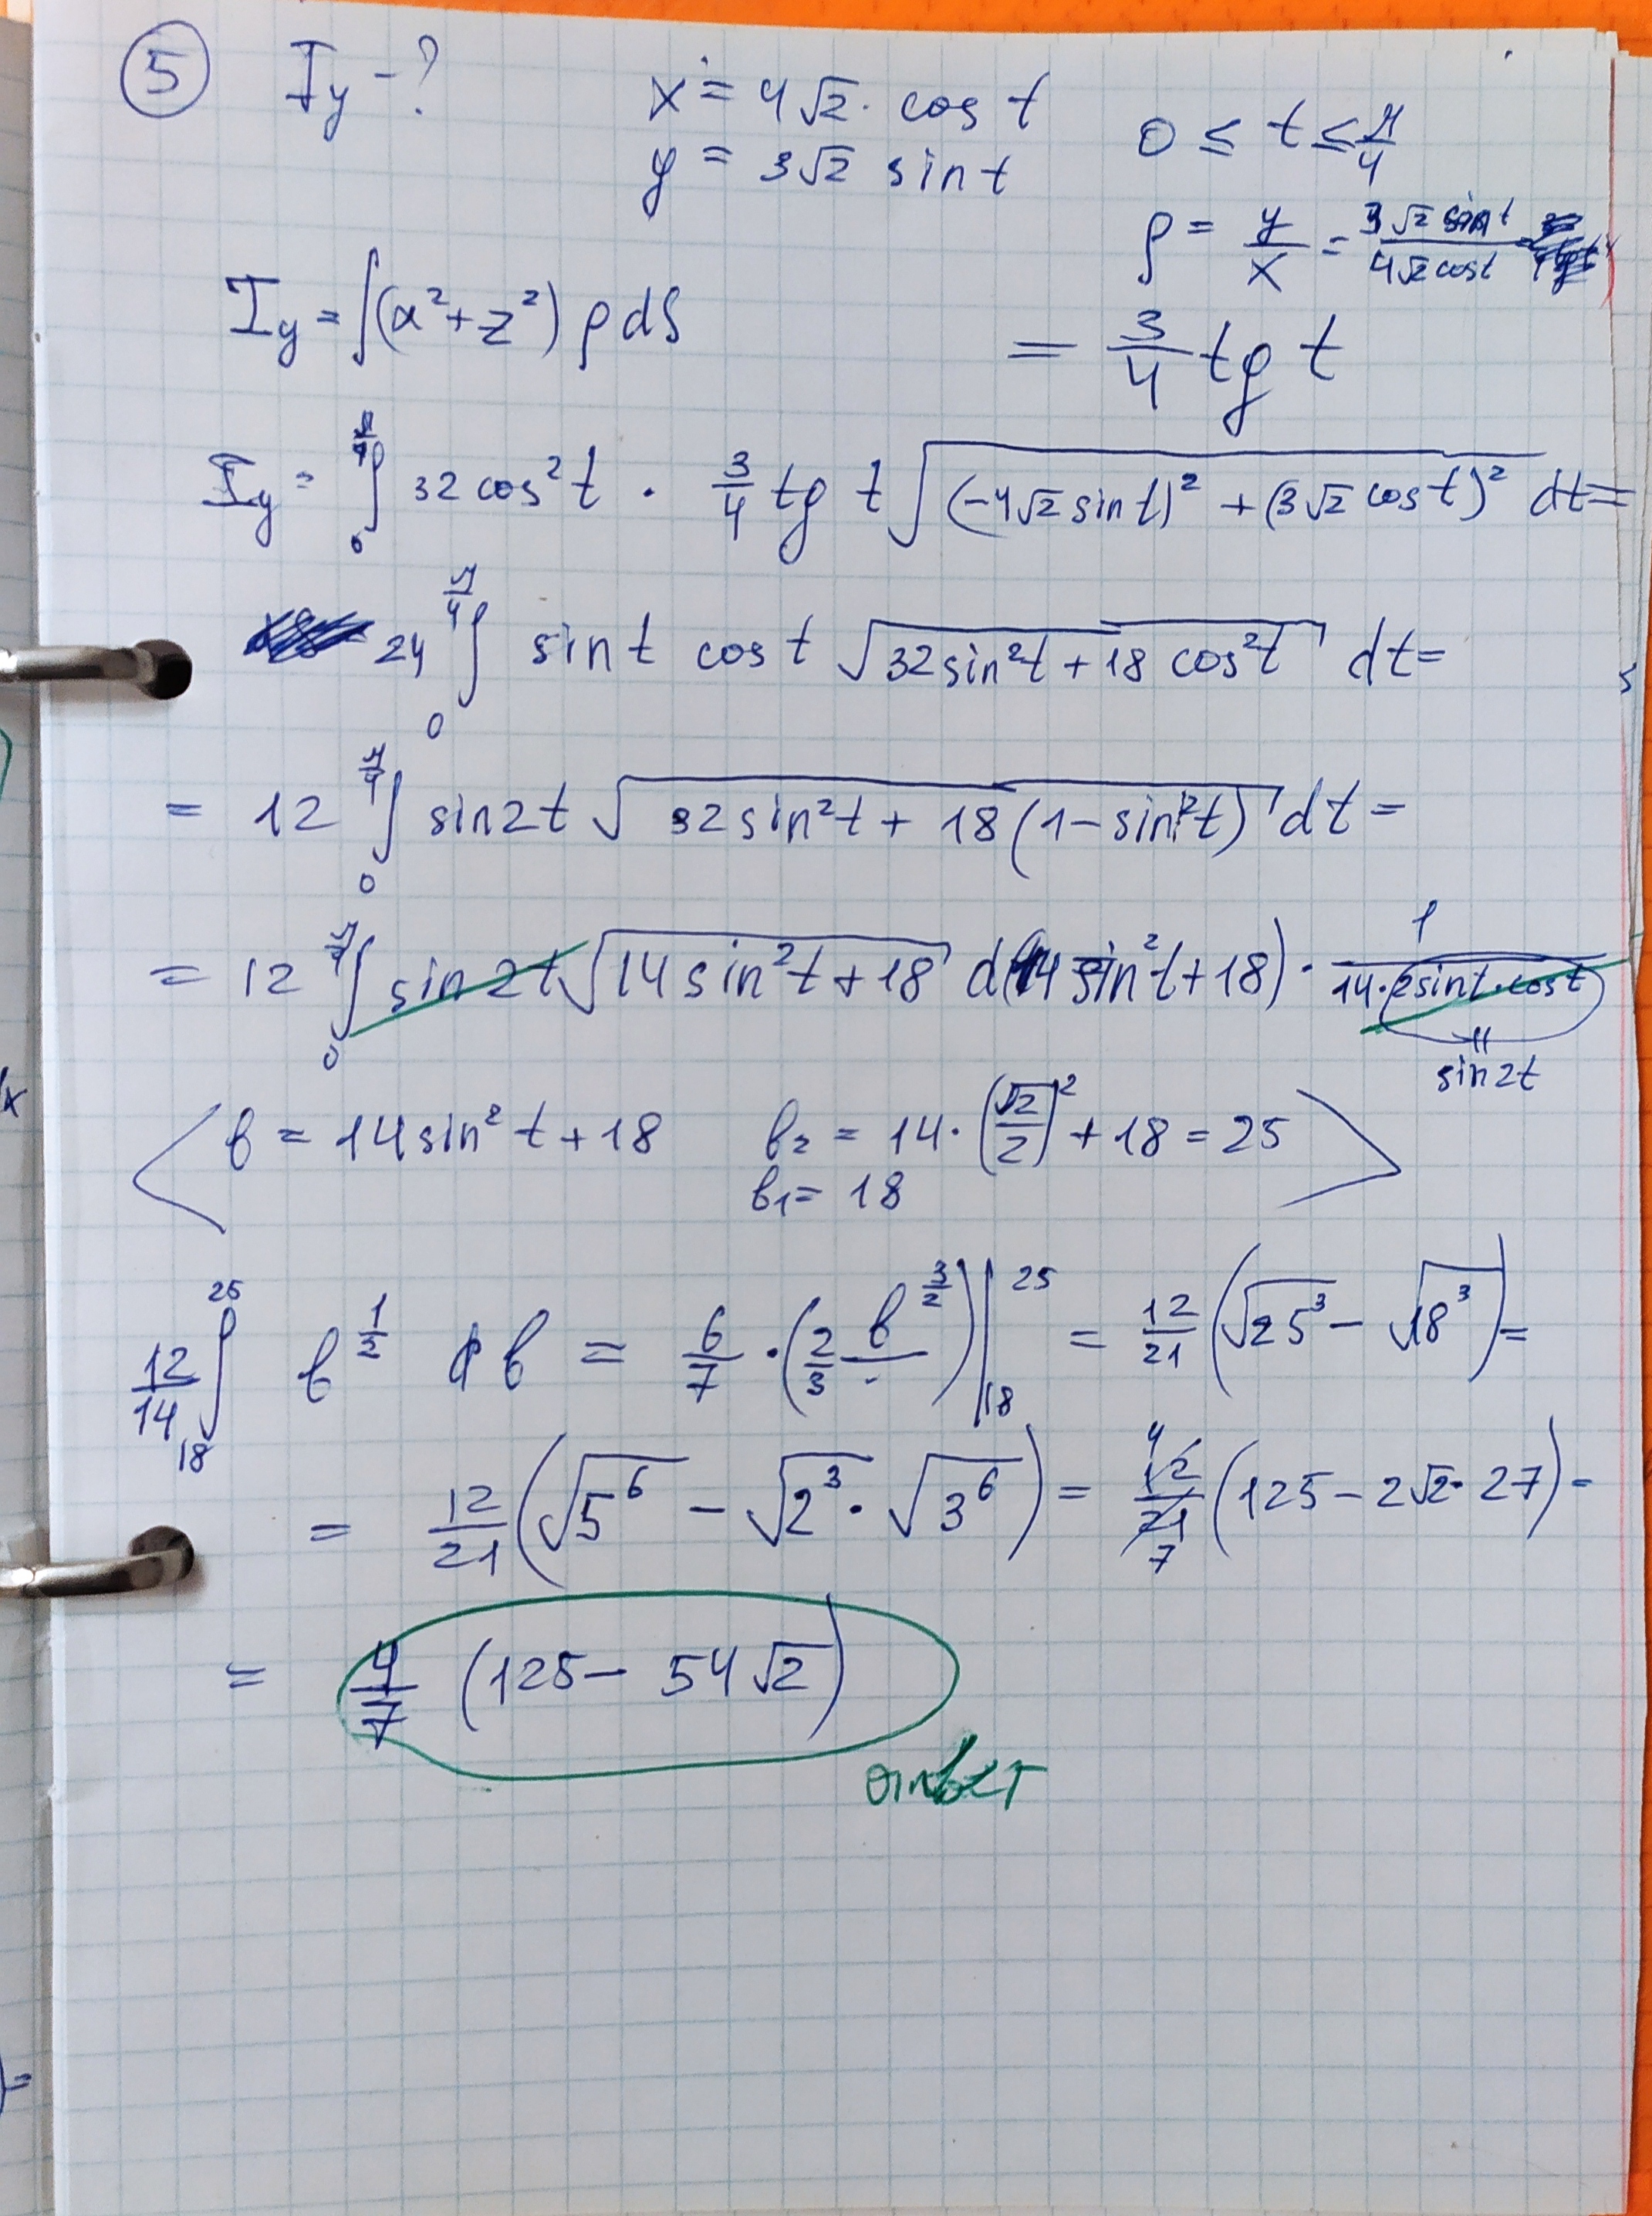 5 Iy - ? x = 4√2 · cos t 0 ≤ t ≤ π/4
y = 3√2 sin t
ρ = y/x = 3√2 sin t / 4√2 cos t =
Iy = ∫(x² + z²) ρ dS = 3/4 tg t
Iy = ∫₀^(π/4) 32 cos² t · 3/4 tg t √((-4√2 sin t)² + (3√2 cos t)²) dt =
= 24 ∫₀^(π/4) sin t cos t √(32 sin² t + 18 cos² t) dt =
= 12 ∫₀^(π/4) sin 2t √(32 sin² t + 18 (1 - sin² t)) dt =
= 12 ∫₀^(π/4) sin 2t √(14 sin² t + 18) d(14 sin² t + 18) · 1/(14 · 2 sin t · cos t)
sin 2t
b = 14 sin² t + 18 b₂ = 14 · (√2/2)² + 18 = 25
b₁ = 18
12/14 ∫₁₈^25 b^(1/2) db = 6/7 · (2/3 b^(3/2)) |₁₈^25 = 12/21 (√25³ - √18³) =
= 12/21 (√5⁶ - √2³ · √3⁶) = 12/21 4/7 (125 - 2√2 · 27) =
= 4/7 (125 - 54√2)
ответ